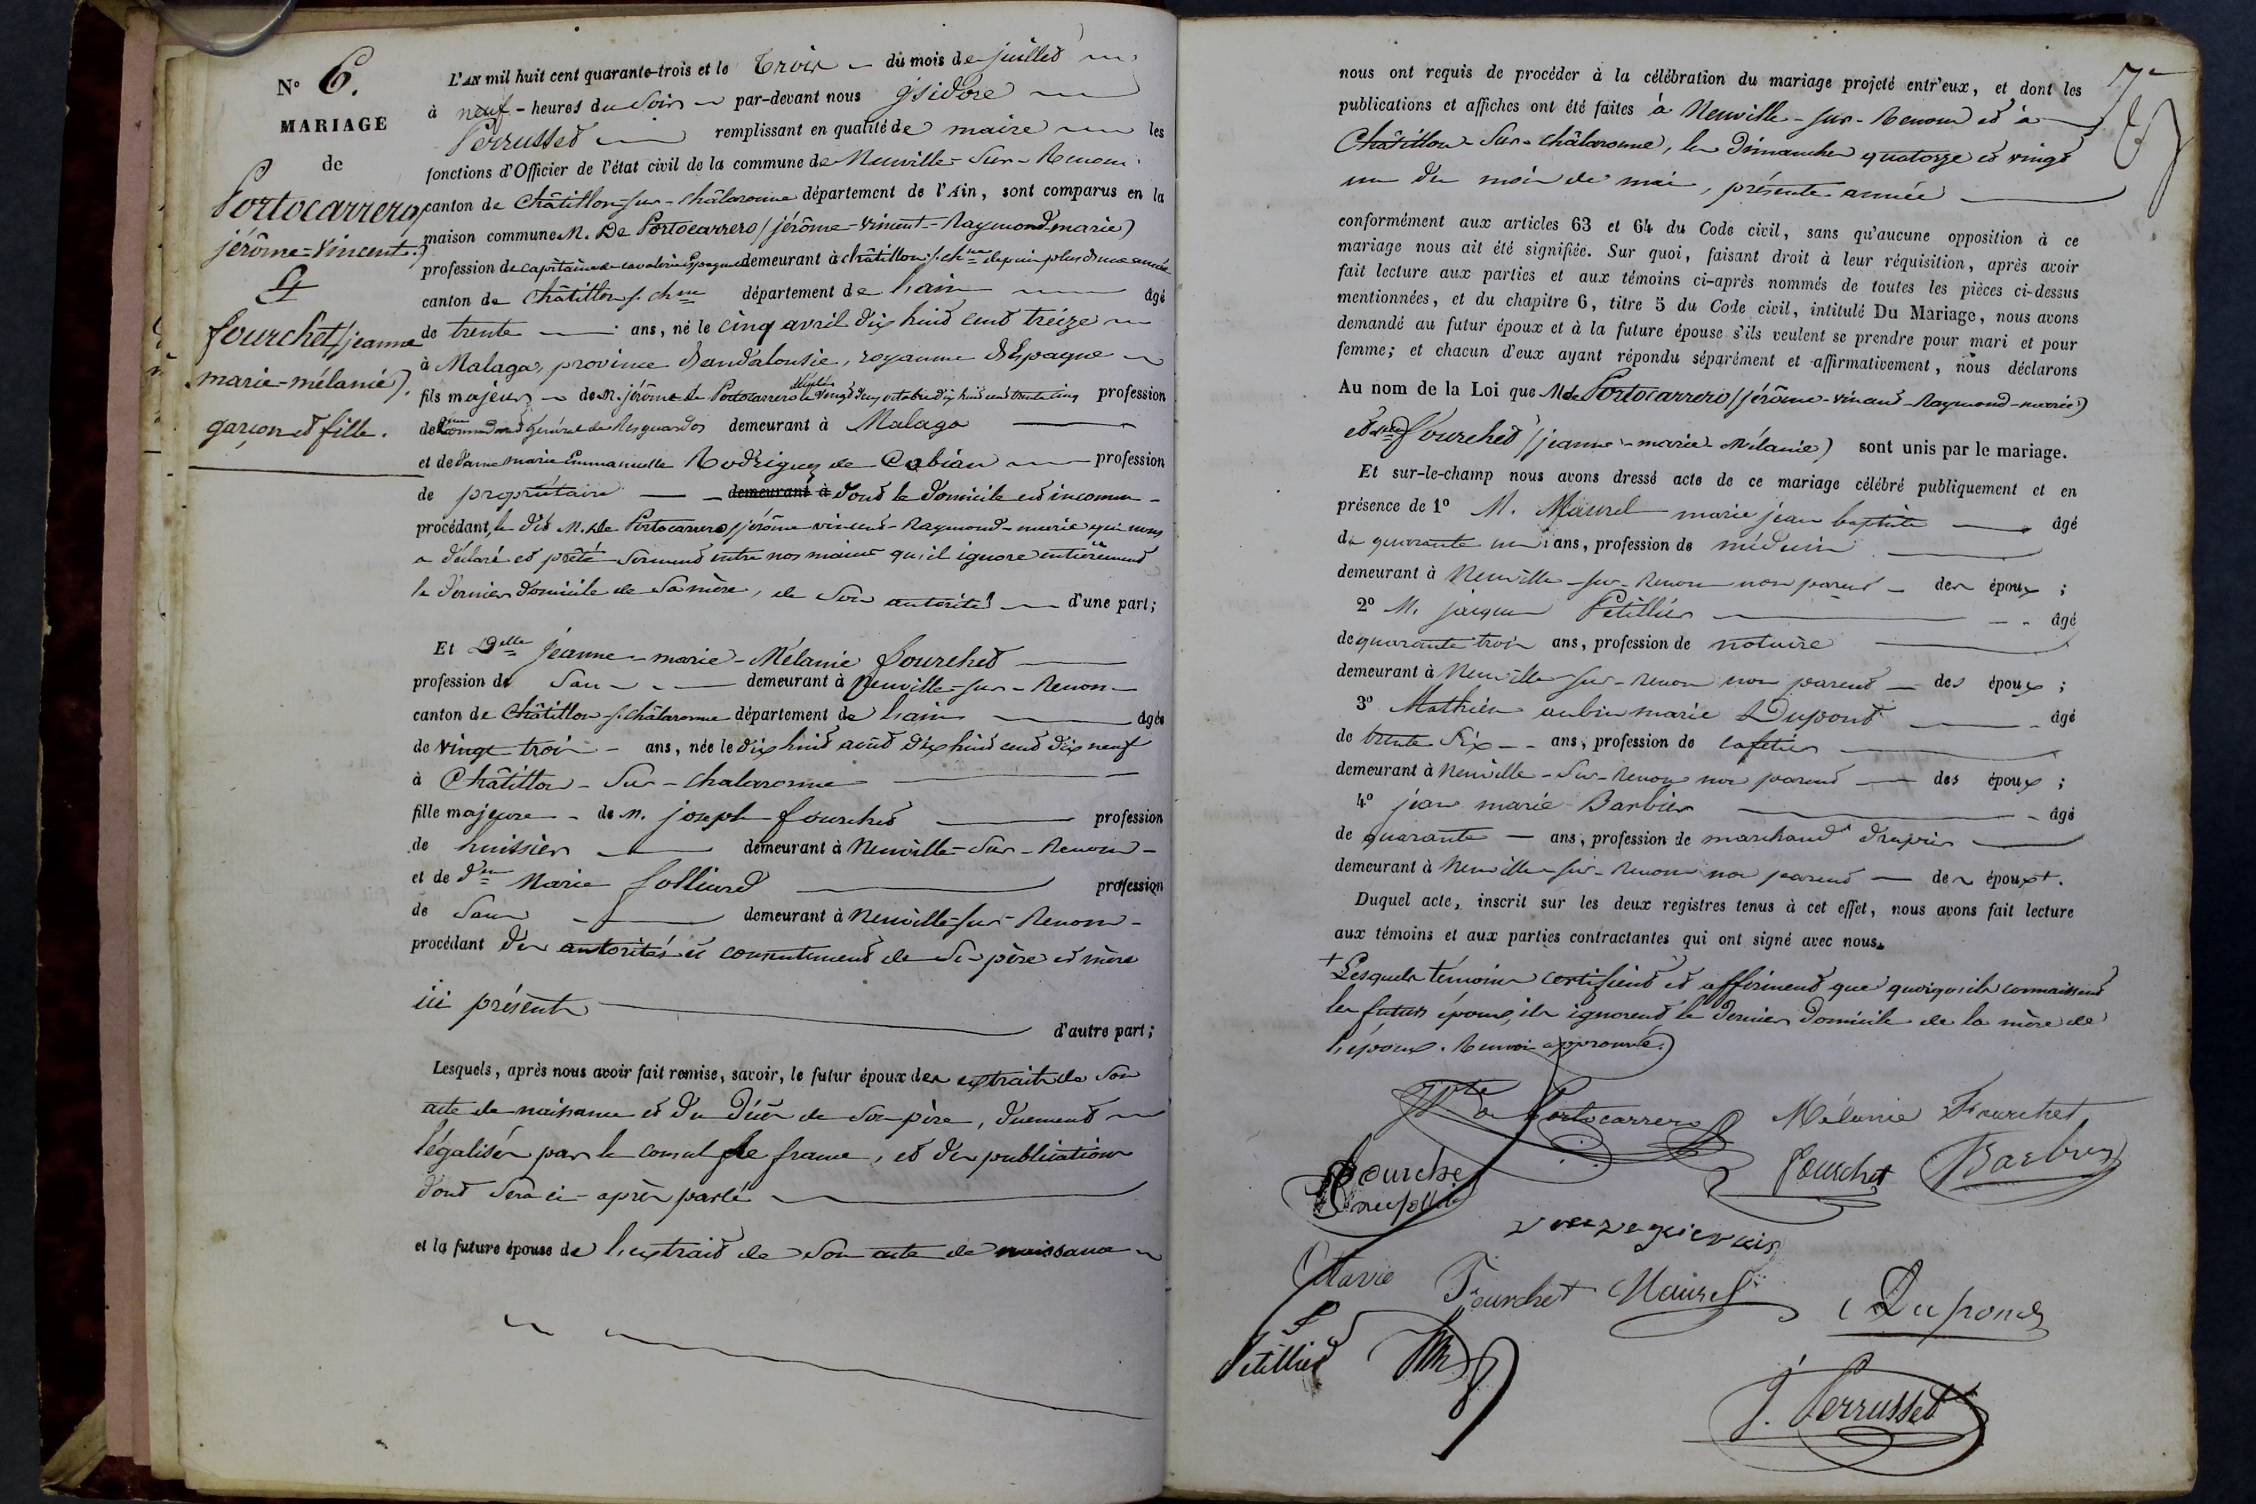 N° 6.
MARIAGE
de
Portocarrero (
jérôme-Vincent.)
&
fourchet (jeanne
marie-mélanie).
garçon et fille.
L'AN mil huit cent quarante-trois et le trois du mois de juillet
à neuf heures du soir par-devant nous gsidore
Perrusset remplissant en qualité de maire les
fonctions d'Officier de l'état civil de la commune de Neuville-sur-Renom
canton de Châtillon-sur-châlaronne département de l'Ain, sont comparus en la
maison commune M. De Portocarrero (jérôme-Vincent-Raymond-marie)
profession de capitaine de cavalerie Espagnole demeurant à châtillon s. chne depuis plus d'une année
canton de Châtillon s. chne département de l'ain âgé
de trente ans, né le cinq avril dix huit cent treize
à Malaga, province d'andalousie, royaume d'Espagne
fils majeur de M. jérôme de Portocarrero décédé le vingt deux octobre dix huit cent trente cinq profession
de Commandant général de Resguardos demeurant à Malaga
et de Dame marie Emmanuelle Rodriguez de Cabian profession
de propriétaire demeurant à dont le domicile est inconnu
procédant, le dit M. De Portocarrero (jérôme vincent-Raymond-marie) qui nous
a déclaré et prêté serment entre nos mains qu'il ignore entièrement
le dernier domicile de sa mère, de son autorité d'une part;
Et Delle jeanne-marie-Mélanie fourchet
profession de sans demeurant à Neuville-sur-Renom
canton de Châtillon-s. châlaronne département de l'ain âgée
de vingt-trois ans, née le dix huit août dix huit cent dix neuf
à Châtillon-Sur-chalaronne
fille majeure de M. joseph fourchet profession
de huissier demeurant à Neuville-Sur-Renom
et de Dme Marie folliard profession
de sans demeurant à Neuville-sur-Renom
procédant des autorités et consentement de ses père et mère
ici présents d'autre part;
Lesquels, après nous avoir fait remise, savoir, le futur époux des extraits de son
acte de naissance et du décès de son père, duement
légalisés par le consul de france, et des publications
dont sera ci-après parlé
et la future épouse de l'extrait de son acte de naissance
7
nous ont requis de procéder à la célébration du mariage projeté entr'eux, et dont les
publications et affiches ont été faites à Neuville-sur-Renom et à
Châtillon-Sur-châlaronne, les dimanches quatorze et vingt
un du mois de mai, présente année
conformément aux articles 63 et 64 du Code civil, sans qu'aucune opposition à ce
mariage nous ait été signifiée. Sur quoi, faisant droit à leur réquisition, après avoir
fait lecture aux parties et aux témoins ci-après nommés de toutes les pièces ci-dessus
mentionnées, et du chapitre 6, titre 5 du Code civil, intitulé Du Mariage, nous avons
demandé au futur époux et à la future épouse s'ils veulent se prendre pour mari et pour
femme; et chacun d'eux ayant répondu séparément et affirmativement, nous déclarons
Au nom de la Loi que M. de Portocarrero (jérôme-vincent-Raymond-marie)
et delle fourchet (jeanne-marie-Mélanie) sont unis par le mariage.
Et sur-le-champ nous avons dressé acte de ce mariage célébré publiquement et en
présence de 1° M. Maurel marie jean baptiste âgé
de quarante un ans, profession de médecin
demeurant à Neuville-sur-Renom non parent des époux;
2° M. jacques Petillier âgé
de quarante trois ans, profession de notaire
demeurant à Neuville sur-Renom non parent des époux;
3° Mathieu aubin marie Dupont âgé
de trente six ans, profession de cafetier
demeurant à Neuville-Sur-Renom non parent des époux;
4° jean marie Barbier âgé
de quarante ans, profession de marchand drapier
demeurant à Neuville-sur-Renom non parent des époux+.
Duquel acte, inscrit sur les deux registres tenus à cet effet, nous avons fait lecture
aux témoins et aux parties contractantes qui ont signé avec nous.
+ Lesquels témoins certifient et affirment que quoiqu'ils connaissent
les futurs époux, ils ignorent le dernier domicile de la mère de
l'époux. Renvoi approuvé.
de Portocarrero Mélanie Fourchet
Fourchet Barbier
Fourchet
Octavie Fourchet Maurel Dupond
Petillier
J. Perrusset